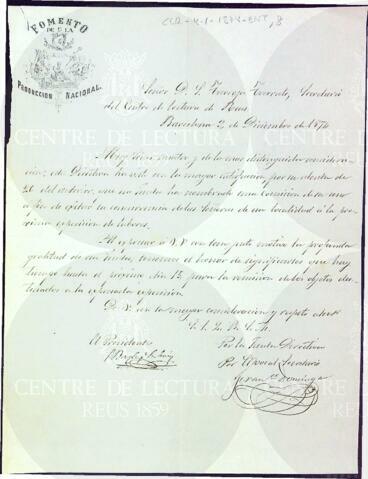 CLR-4-1-1874-ENT, 8
FOMENTO
DE LA
PRODUCCION NACIONAL.
Señor D. Secretario
del Centro de Lectura de Reus
Barcelona 2 Diciembre de 1874
Muy Señor nuestro y de la mas distinguida consideracion:
La Directiva ha visto con la mayor satisfaccion por su atenta de
26 del anterior, que su Junta ha nombrado una Comision de
a fin de la concurrencia de las Señoras de esa localidad á la próxima
exposicion de labores.
Al expresar á V. con este motivo la profunda
gratitud de esta Junta, tenemos el honor de significarle que hay
tiempo hasta el proximo dia 15 para la remision de los objetos destinados
á la expresada exposicion.
De V. con la mayor consideracion y respeto
S. S. Q. B. S. M.
El Presidente
Por la Junta Directiva
El Vocal Secretario
CENTRE DE LECTURA
CENTRE DE LECTURA
REUS 1859